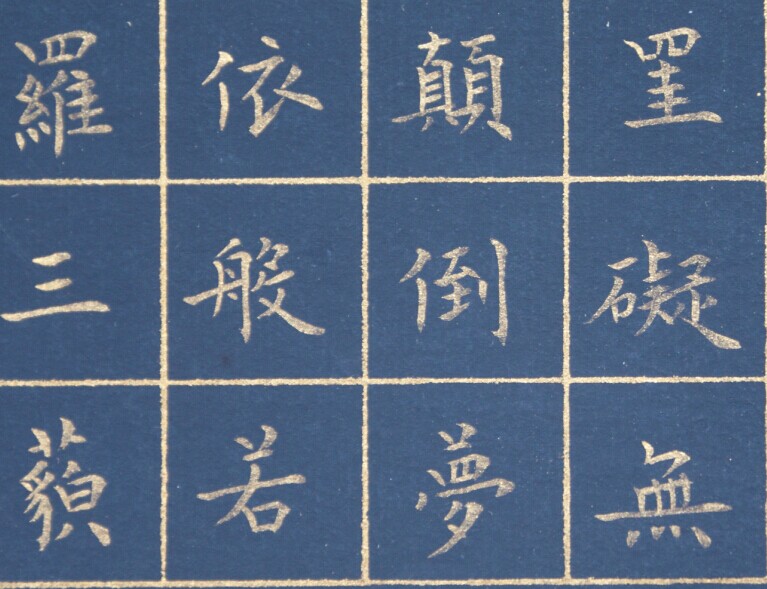 罣礙無
顛倒夢
依般若
羅三藐